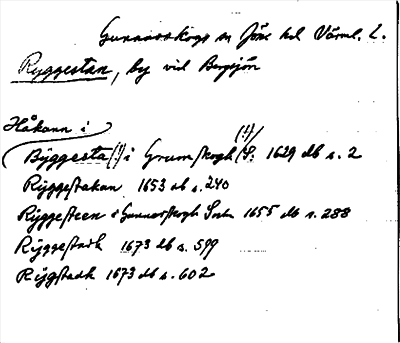 Gunnarskogs sn Jösse hd Värml. L.
Ryggestan, by vid Bergsjön
Håkann i
Byggesta (!) i Grumskogh (!) S: 1629 db s. 2
Ryggestakan 1653 db s. 240
Ryggesteen i Gunnerskogh Sn 1655 db s. 288
Ryggestadh 1673 db s. 599
Rygstadh 1673 db s. 602